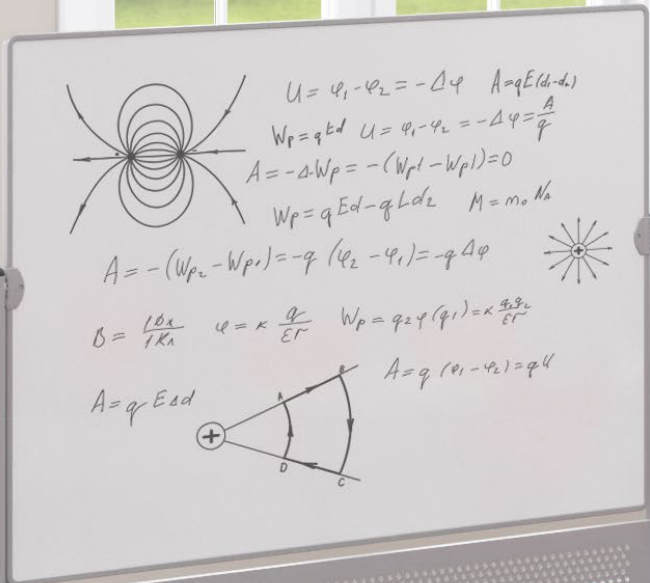 U = φ₁-φ₂ = -Δφ A=qE(d₁-d₂)
Wp=qEd U = φ₁-φ₂ = -Δφ = A/q
A = -ΔWp = -(Wp1 - Wp1)=0
Wp = qEd-qLd₂ M = m₀ Nᴀ
A = -(Wp₂ - Wp₁)=-q (φ₂ - φ₁)=-qΔφ
φ = к q/εr Wp = q₂φ(q₁)=к q₁q₂/εr
A = q (φ₁-φ₂)=qU
A = q EΔd
A B
+
D C